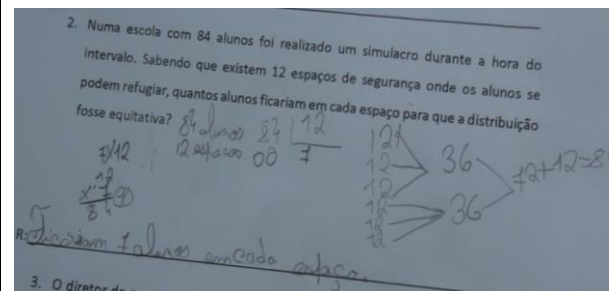 2. Numa escola com 84 alunos foi realizado um simulacro durante a hora do
intervalo. Sabendo que existem 12 espaços de segurança onde os alunos se
podem refugiar, quantos alunos ficariam em cada espaço para que a distribuição
fosse equitativa? 84 alunos 84 12
12 espaços 00 7
7x12
12
x 7
84
12
12
12
12
12
12
36
36
72+12=8
R: Ficariam 7 alunos em cada espaço.
3. O diretor